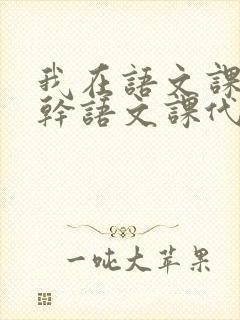 我在語文課
幹語文課代
一吨大苹果